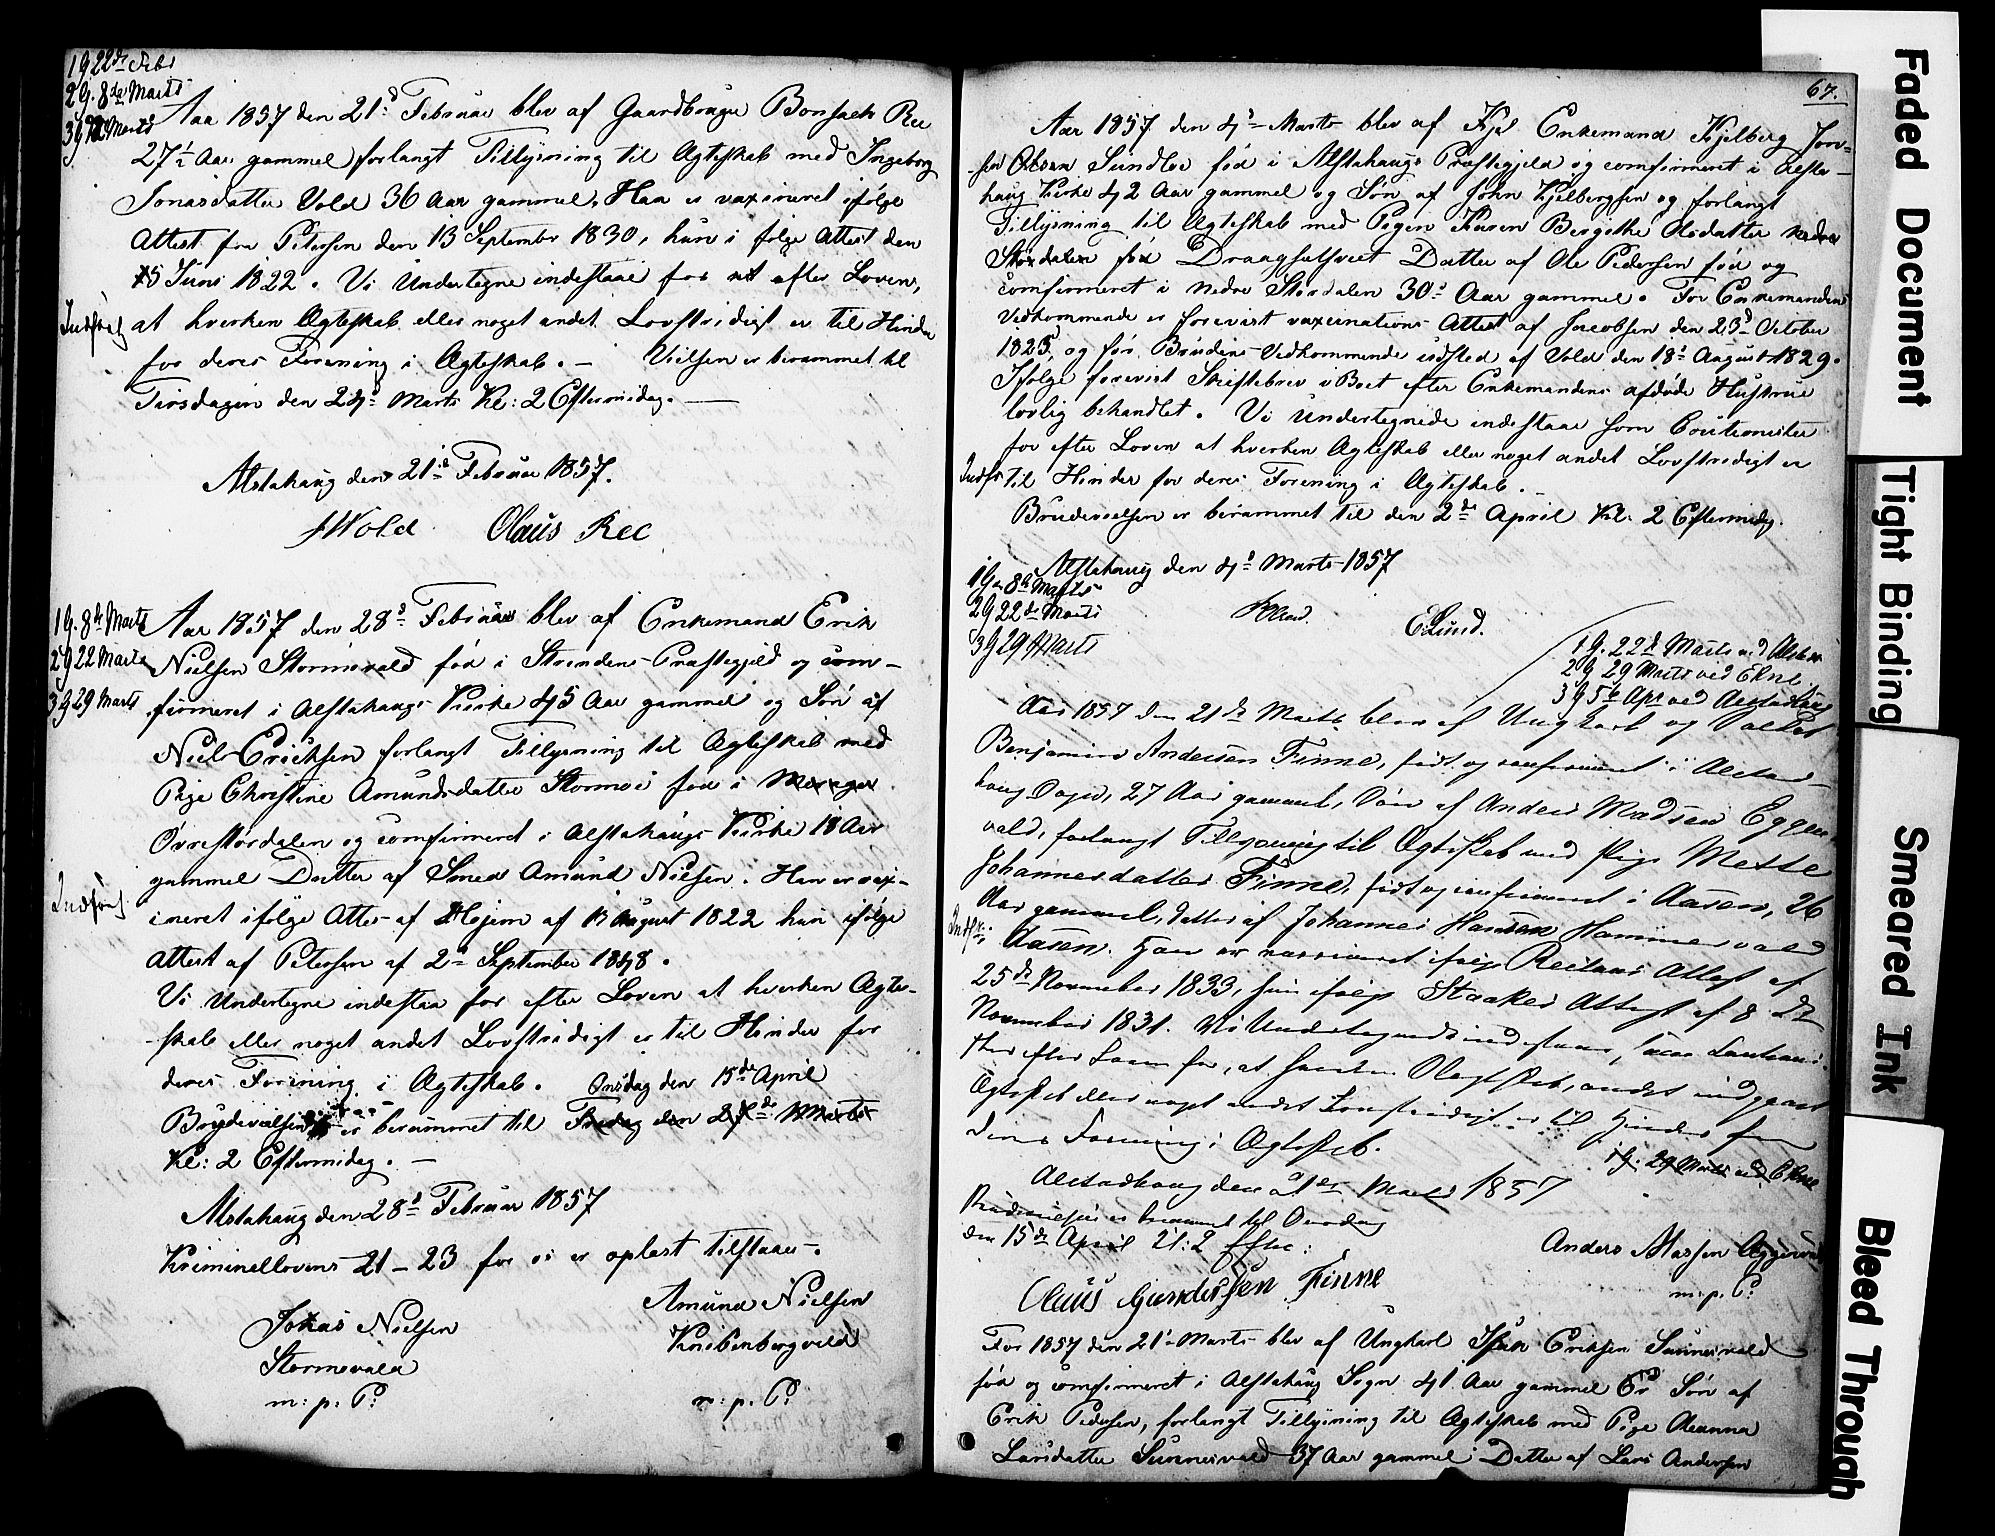 1 G. 22de Febr
2 G. 8de Marts
3 G 22 Marts
Aar 1857 den 21d Februar blev af Gaardbruger Bonsach Ree
27½ Aar gammel forlangt Tillysning til Ægteskab med Ingeborg
Jonasdatter Vold 36 Aar gammel, Han er vaxineret ifølge
Attest fra Petersen den 13 September 1830, hun i følge Attest den
15 Juni 1822. Vi Undertegne indestaae for at efter Loven,
Indført
at hverken Ægteskab eller noget andet Lovstridigt er til Hinder
for deres Forening i Ægteskab. – Vielsen er berammet til
Tirsdagen den 24d Marts Kl: 2 Eftermidag. —
Alstahaug den 21d Februar 1857.
JWold Olaus Ree
1 G. 8de Marts
2 G 22 Marts
3 G 29 Marts
Aar 1857 den 28d Februar blev af Enkemand Erik
Nielsen Stormevald fød i Strindens Præstegjeld og com-
firmeret i Alstahaugs Kirke 45 Aar gammel og Søn af
Niels Ericksen forlangt Tillysning til Ægteskab med
Pige Christine Amundsdatter Stormoe fød i Merager
Øvrestordalen og comfirmeret i Alstahaugs Kirke 18 Aar
gammel Datter af Smed Amund Nielsen. Han er vax-
Indført
ineret ifølge Atte- af Hejem af 13 August 1822 hun ifølge
Attest af Petersen af 2d September 1848.
Vi Undertegne indestaa for efter Loven at hverken Ægte-
skab eller noget andet Lovstridigt er til Hinder for
deres Forening i Ægteskab. Onsdag den 15de April
Brydevielsen er berammet til Fredag den 27de Marts
Kl: 2 Eftermidag. —
Alstahaug den 28d Februar 1857
Kriminellovens 21–23 for os er oplæst tilstaaes.
Johas Nielsen
Stormevald
m: p. P:
Amund Nielsen
Knibenbergvald
m: p. P:
67.
Aar 1857 den 4d Marts blev af Enkemand Kjelberg Jon-
sen Olsen Sundbo fød i Alstahaugs Præstegjeld og comfirmeret i Alsta-
haug Kirke 42 Aar gammel og Søn af John Kjelbergsen og forlangt
Tillysning til Ægteskab med Pigen Karen Bergithe Olsdatter nedre
Stordalen fød Draagsetsveet Datter af Ole Pedersen fød og
comfirmeret i Nedre Stordalen 30d Aar gammel. For Enkemandens
Vedkommende er forevist vaxinations Attest af Jacobsen den 23d October
1825, og for Brudens Vedkommende udsted af Vold den 18d August 1829.
Ifølge forevist Skiftebrev i Boet efter Enkemandens afdøde Hustrue
lovlig behandlet. Vi Undertegnede indestaae som
for efter Loven at hverken Ægteskab eller noget andet Lovstridigt er
Indført
til Hinder for deres Forening i Ægteskab. –
Brudevielsen er berammet til den 2de April Kl: 2 Eftermidag.
Alstahaug den 4d Marts 1857
1 G. 8de Marts
2 G 22de Marts
3 G 29 Marts
ELund.
1 G. 22de Marts ved Alstah
2 G 29 Marts ved Ekne
3 G 5te Apr ved Alstadhaug
Aar 1857 den 21de Marts blev af Ungkarl og
Benjamin Andersen Finne, født og confirmeret i Alstad-
haug Sogn, 27 Aar gammel, Søn af Anders Madsen Eggen-
vald, forlangt Tillysning til Ægteskab med Pige Mette
Johannesdatter Finne, født og confirmeret i Aasen, 26
Aar gammel, Datter af Johannes Hansen Hammervald
Indført
Aasen. Han er vaxineret ifølge Reitans Attest af
25de November 1833, hun ifølge Staakes Attest af 8de
November 1831. Vi Undertegnede indestaae, som
efter Loven for, at
Ægteskab eller noget andet Lovstridigt er til Hinder for
deres Forening i Ægteskab.
1 G. 29 Marts ved Ekne
Alstadhaug den 21de Marts 1857
Brudevielsen er berammet til Onsdag
den 15de April Kl: 2 Efter:
Anders Massen Eggenvald
m: p. P:
Olaus Gundersen Finne
Aar 1857 den 21d Marts blev af Ungkarl Eriksen Sunnesvald
fød og comfirmeret i Alstahaug Sogn 41 Aar gammel Er Søn af
Erik Pedersen, forlangt Tillysning til Ægteskab med Pige Oleanna
Larsdatter Sunnesvald 37 Aar gammel Datter af Lars Andersen
Faded Document
Tight Binding
Smeared Ink
Bleed Through